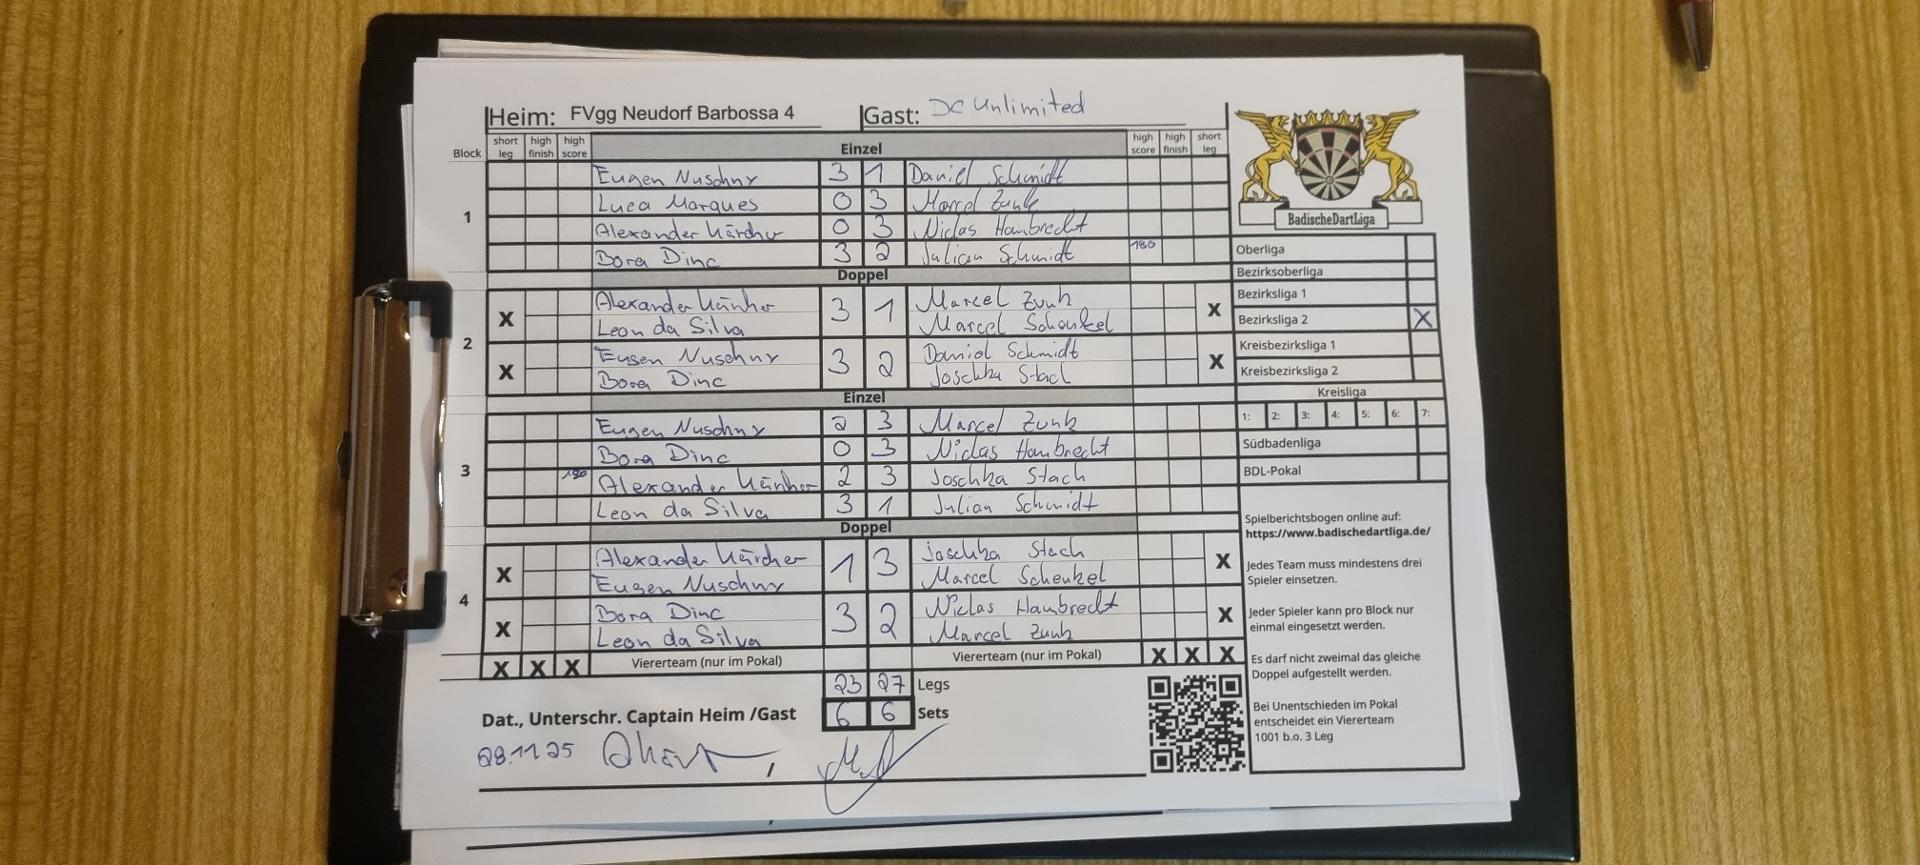 Heim: FVgg Neudorf Barbossa 4 Gast: DC Unlimited
Block short leg high finish high score Einzel high score high finish short leg
1
Eugen Nuschny 3 1 Daniel Schmidt
Luca Marques 0 3 Marcel Zunk
Alexander Kärcher 0 3 Niclas Hambrecht
Bora Dinc 3 2 Julian Schmidt 180
Doppel
2
X Alexander Kärcher 3 1 Marcel Zunk X
Leon da Silva Marcel Schenkel
X Eugen Nuschny 3 2 Daniel Schmidt X
Bora Dinc Joschka Stach
Einzel
3
Eugen Nuschny 2 3 Marcel Zunk
Bora Dinc 0 3 Niclas Hambrecht
180 Alexander Kärcher 2 3 Joschka Stach
Leon da Silva 3 1 Julian Schmidt
Doppel
4
X Alexander Kärcher 1 3 Joschka Stach X
Eugen Nuschny Marcel Schenkel
X Bora Dinc 3 2 Niclas Hambrecht X
Leon da Silva Marcel Zunk
X X X Viererteam (nur im Pokal) Viererteam (nur im Pokal) X X X
23 27 Legs
6 6 Sets
Dat., Unterschr. Captain Heim /Gast
28.11.25
BadischeDartLiga
Oberliga
Bezirksoberliga
Bezirksliga 1
Bezirksliga 2 X
Kreisbezirksliga 1
Kreisbezirksliga 2
Kreisliga
1: 2: 3: 4: 5: 6: 7:
Südbadenliga
BDL-Pokal
Spielberichtsbogen online auf:
https://www.badischedartliga.de/
Jedes Team muss mindestens drei
Spieler einsetzen.
Jeder Spieler kann pro Block nur
einmal eingesetzt werden.
Es darf nicht zweimal das gleiche
Doppel aufgestellt werden.
Bei Unentschieden im Pokal
entscheidet ein Viererteam
1001 b.o. 3 Leg